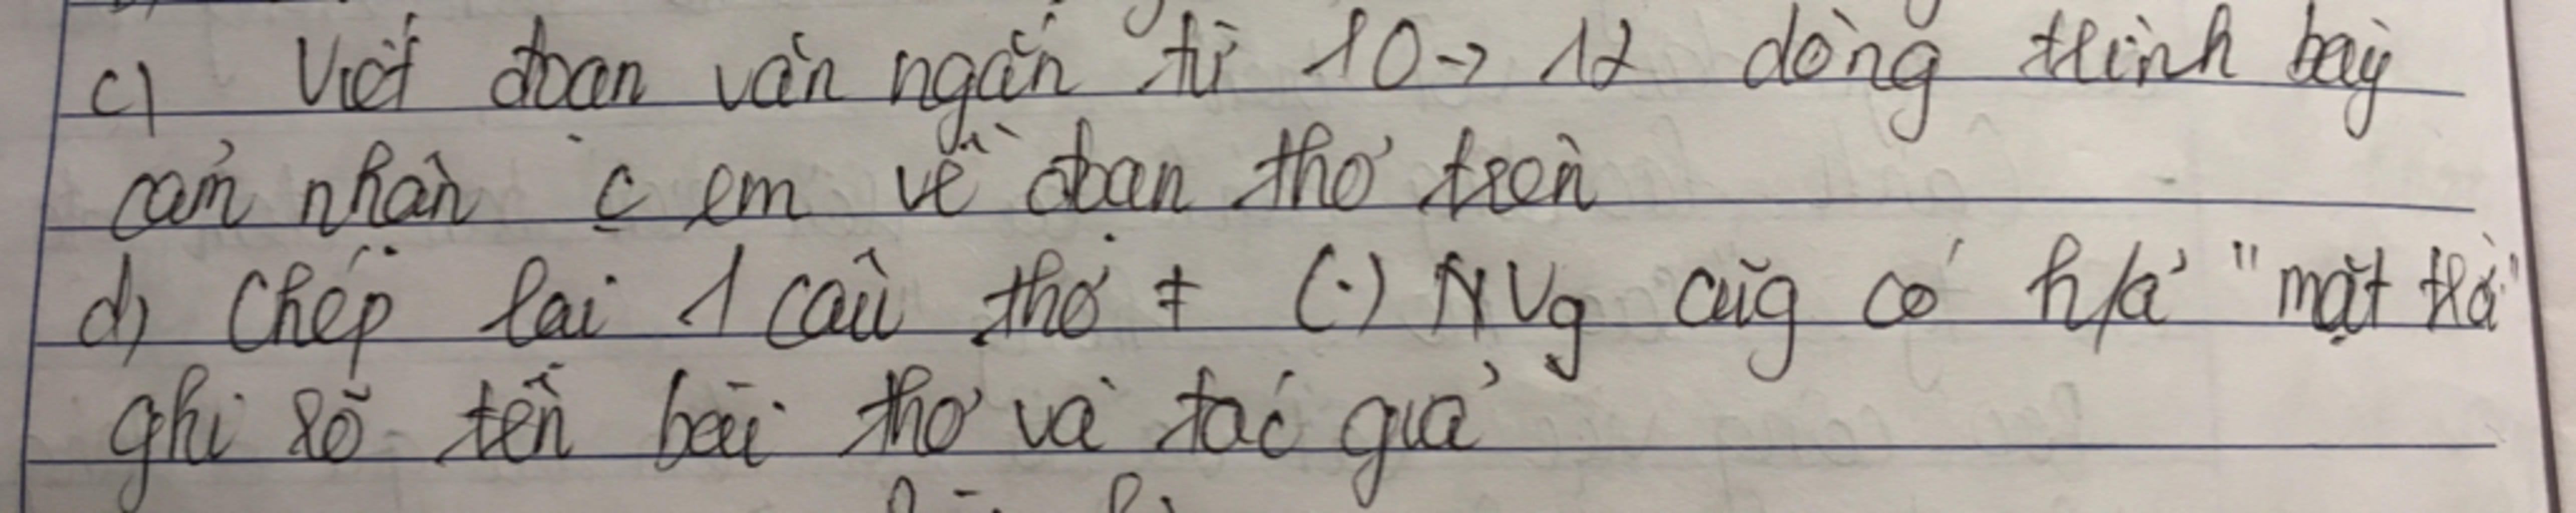 c) Viết đoạn văn ngắn từ 10 -> 12 dòng trình bày
cảm nhận c em về đoạn thơ trên
d) Chép lại 1 câu thơ ≠ (.) NVg cũg có h/ả "mặt trờ"
ghi rõ tên bài thơ và tác giả